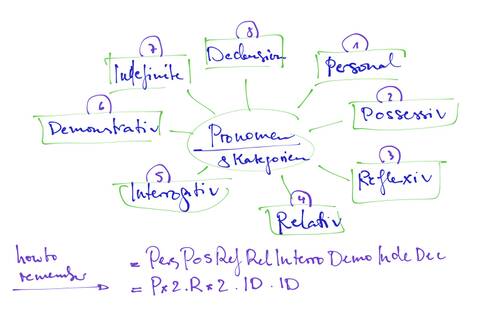 8
Declension
1
Personal
2
Possessiv
3
Reflexiv
4
Relativ
5
Interrogitiv
6
Demonstrativ
7
Indefinite
Pronomen
8 Kategorien
how to
remember
= Pers Pos Ref Rel Interro Demo Inde Dec
= P*2.R*2.ID.ID